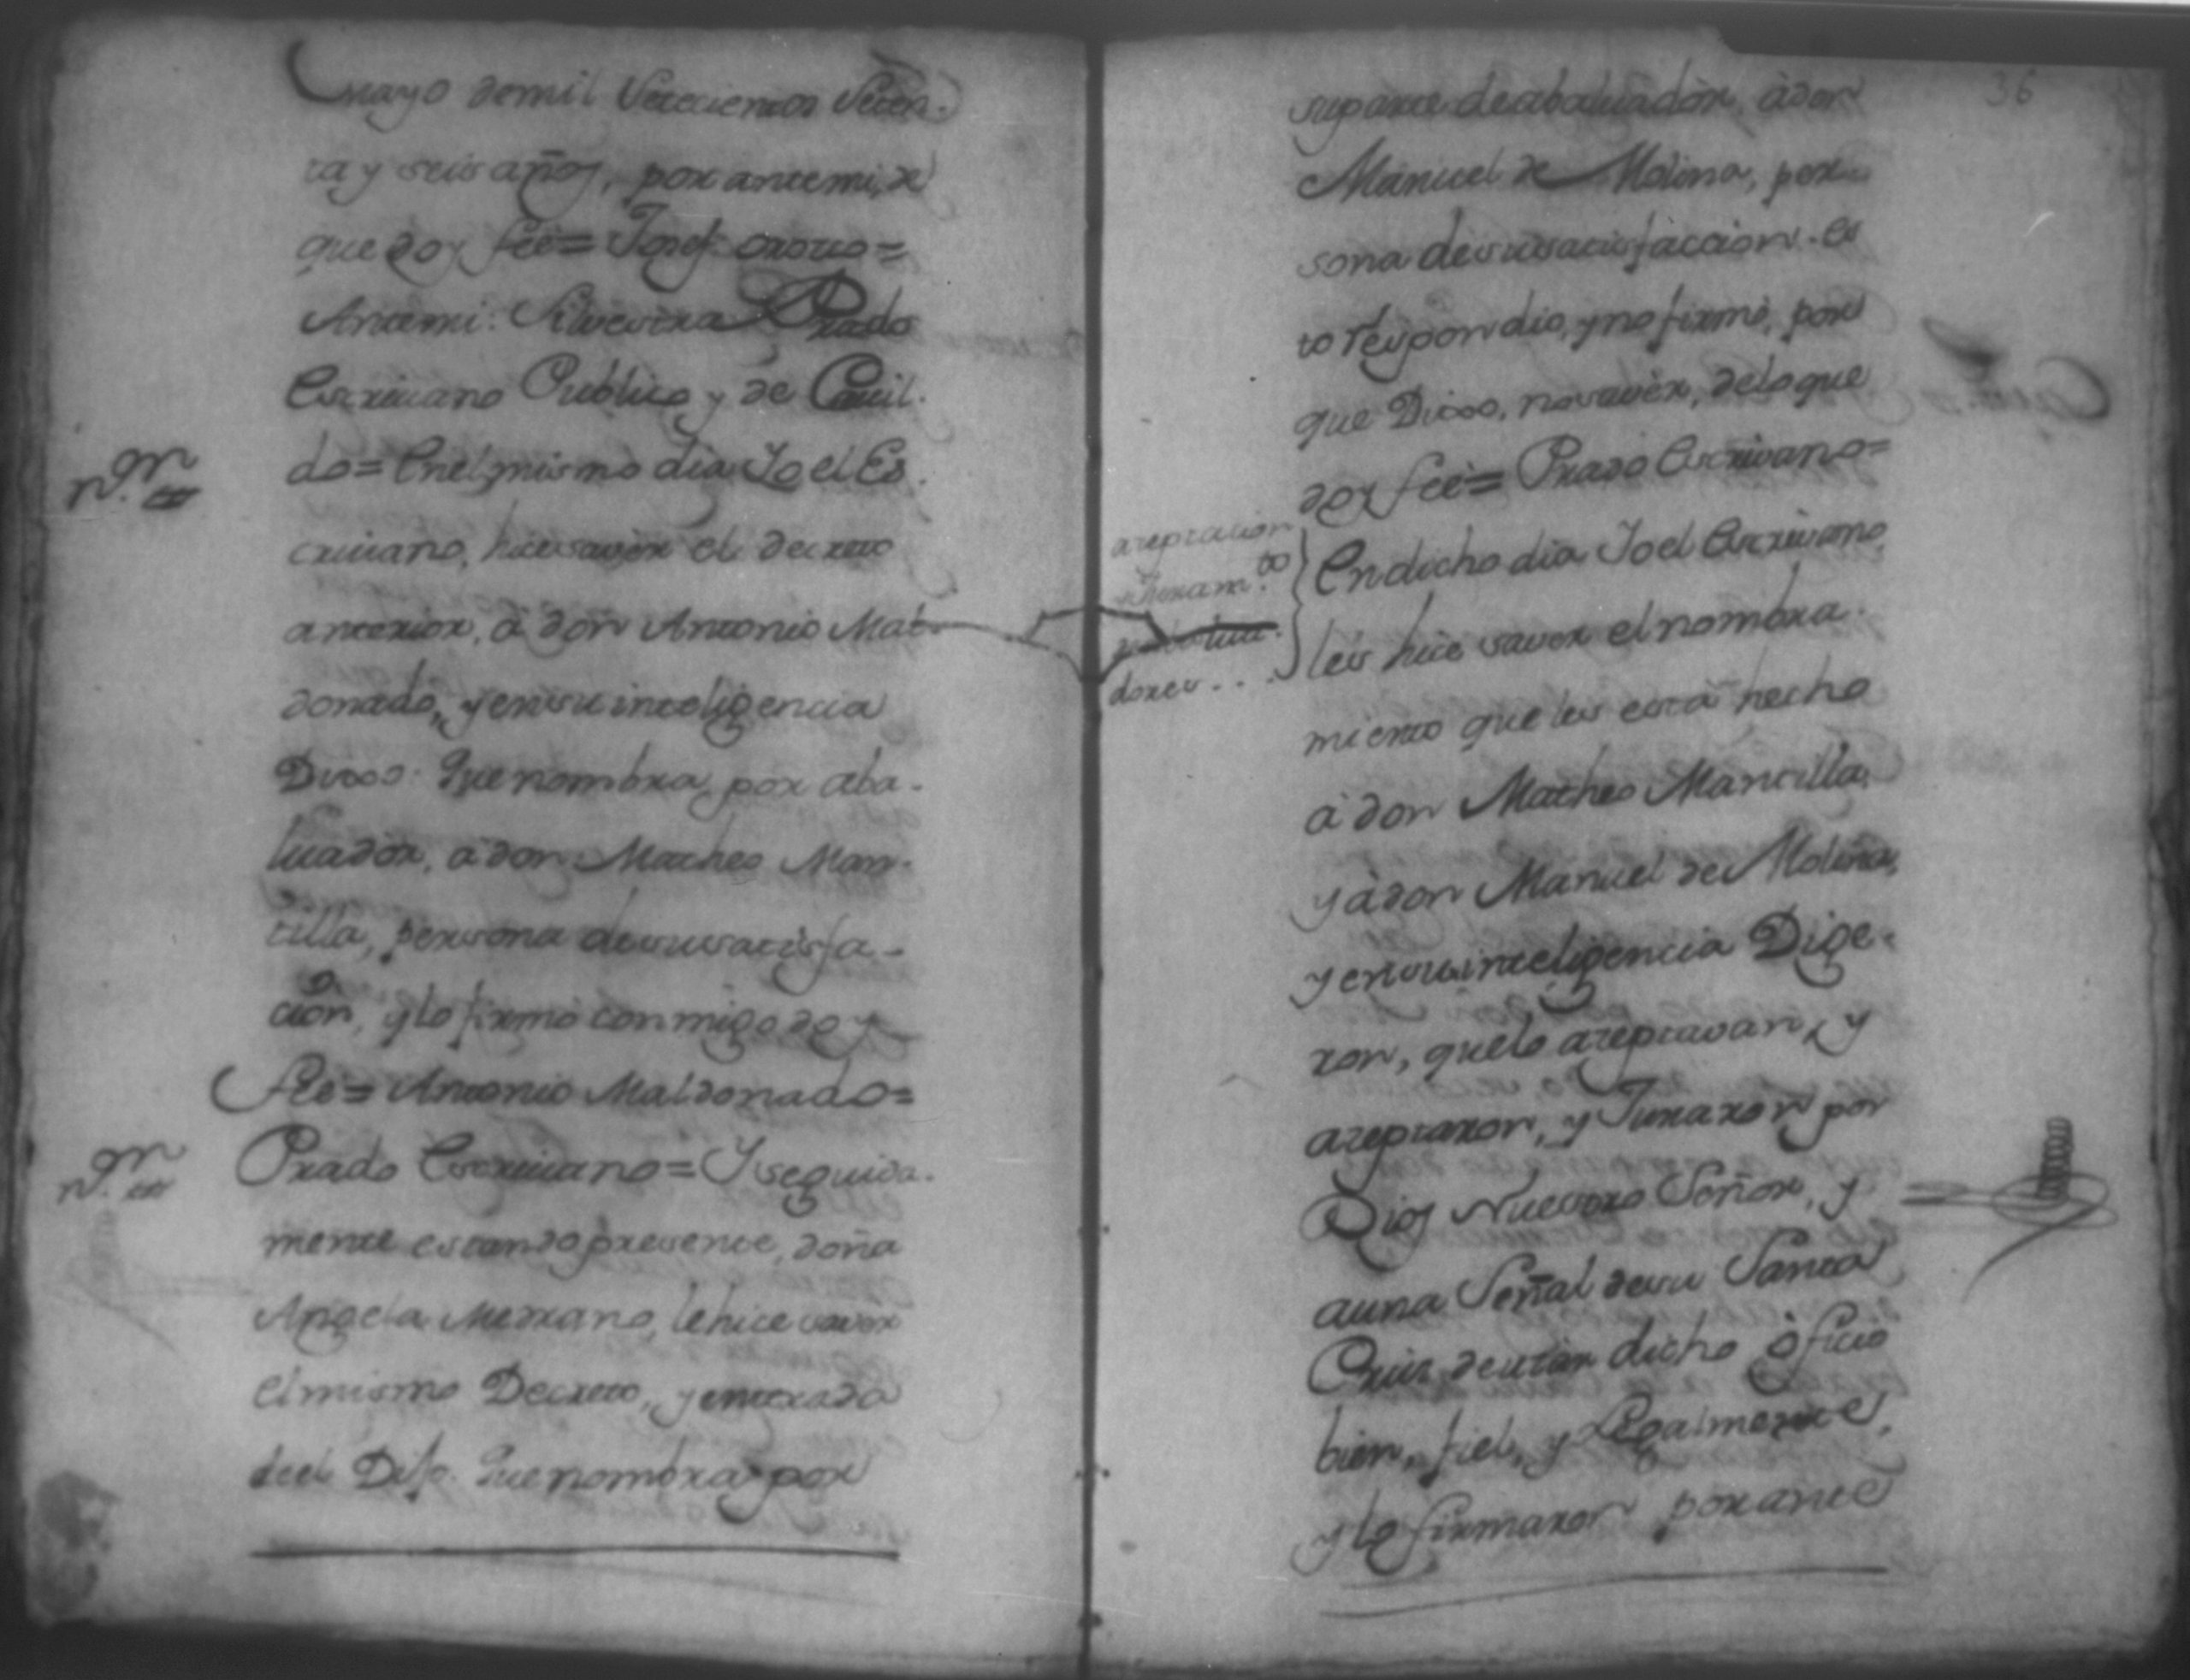 mayo demil Setecientos Seten-
ta y seis años, por antemi, de
que doy feé= Josef orosco=
Antemi: Silvestra Prado
Escrivano Publico y de Cavil-
do= Enel mismo dia Yo el Es-
crivano, hice savér el decreto
anterior, à don Antonio Mal-
donado, y ensu inteligencia
Dixo: Que nombra por aba-
luadór, a don Matheo Man-
cilla, persona desu satisfa-
ción, y lo firmó conmigo doy
feé= Antonio Maldonado=
Prado Escrivano= Y seguida-
mente estando presente, doña
Angela Medrano, le hice savér
el mismo Decreto, y enterada
deel Dijo. Que nombra por
suparte de abaluadór, à don
Manuel de Molina, per-
sona desu satisfaccion. es
to respondio, y no firmó, por
que Dixo, no savér, de lo que
doy feé= Prado Escrivano=
aceptacion
Juram.to
dores...
En dicho dia Yo el Escrivano
leis hice saver el nombra-
miento que les está hecho
à don Matheo Mancilla,
y à don Manuel de Molina,
y ensu inteligencia Dige-
ron, que lo aceptavan, y
aceptaron, y Juraron por
Dios Nuestro Señor, y
auna Señal desu Santa
Cruz de usar dicho oficio
bien, fiel, y Legalmente,
y lo firmaron por ante
36